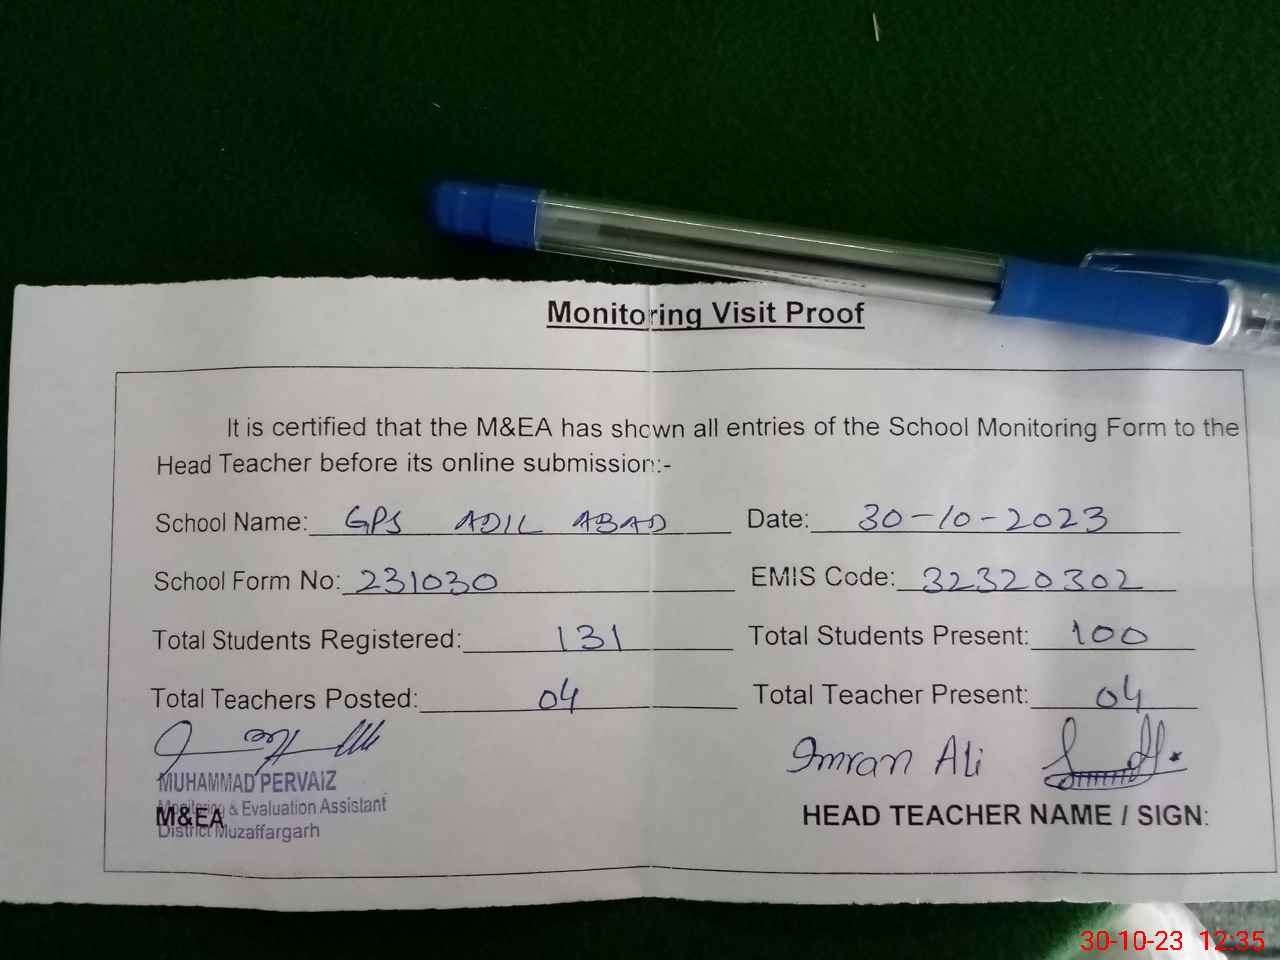 Monitoring Visit Proof
It is certified that the M&EA has shown all entries of the School Monitoring Form to the
Head Teacher before its online submission:-
School Name: GPS ADIL ABAD Date: 30-10-2023
School Form No: 231030 EMIS Code: 32320302
Total Students Registered: 131 Total Students Present: 100
Total Teachers Posted: 04 Total Teacher Present: 04
Imran Ali
MUHAMMAD PERVAIZ
Monitoring & Evaluation Assistant
M&EA HEAD TEACHER NAME / SIGN:
District Muzaffargarh
30-10-23 12:35